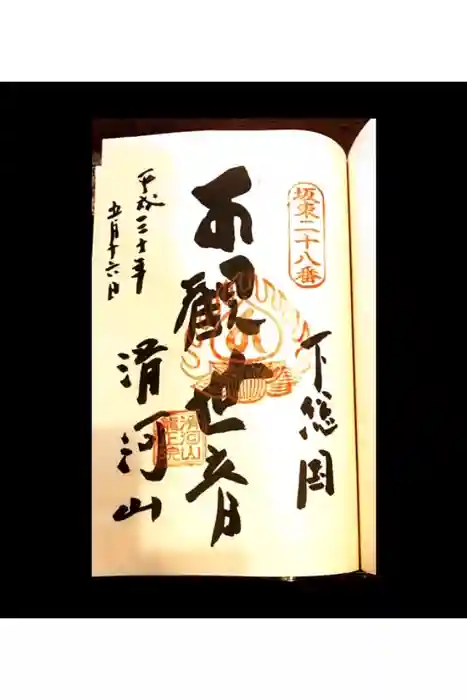 坂東二十八番
下総国
本観世音
滑河山
滑河山龍正院
平成三十年
五月十六日